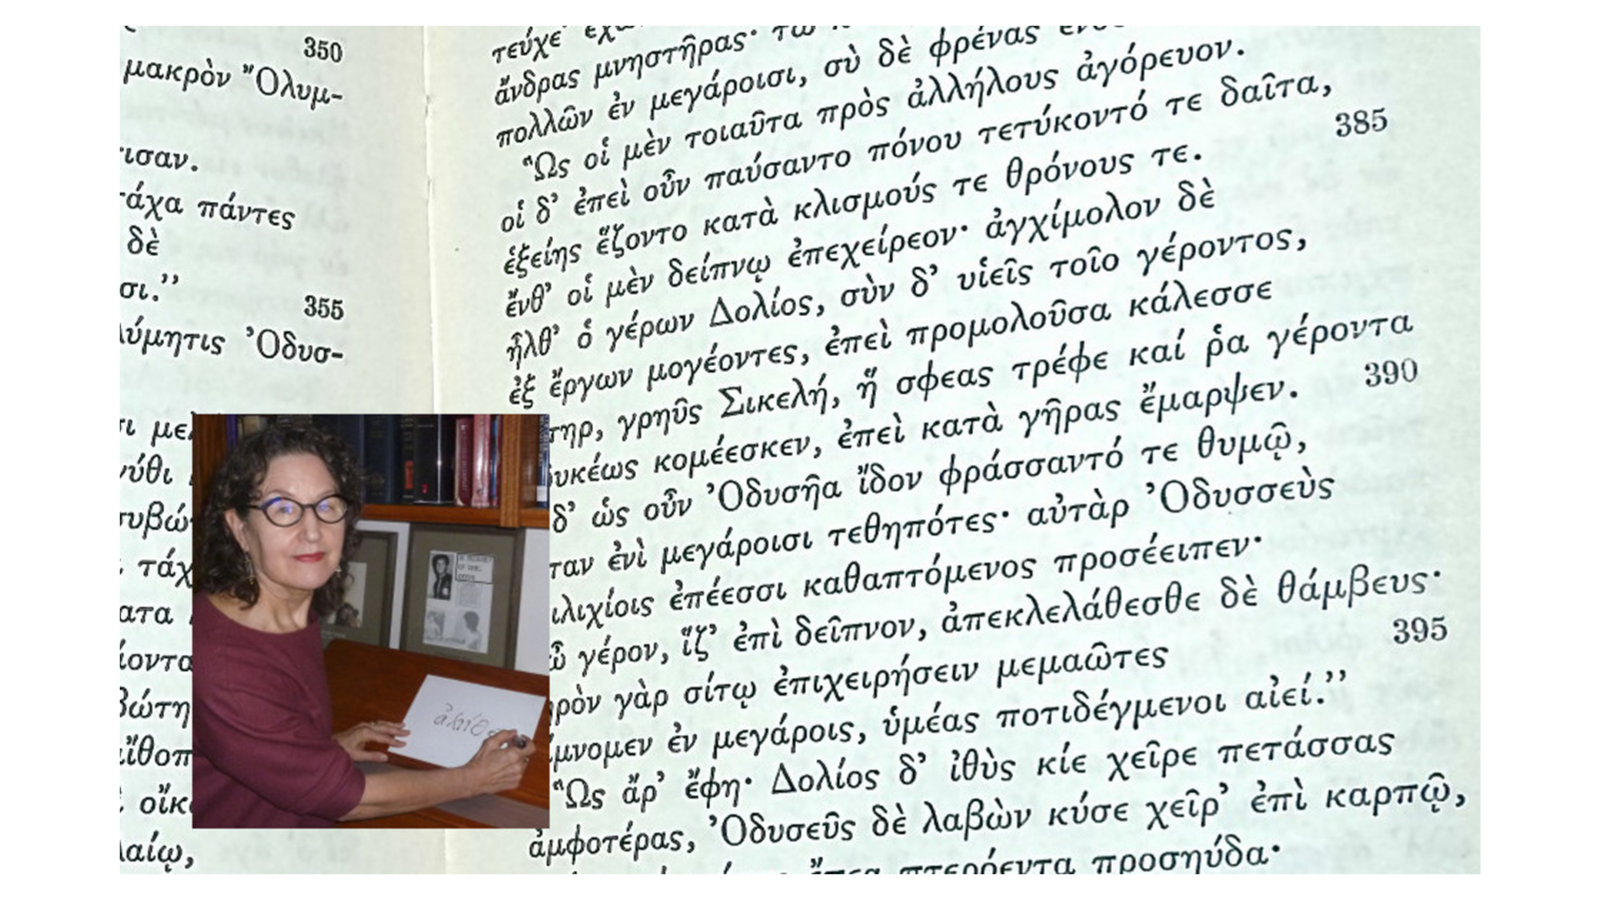 350
μακρὸν Ὄλυμ-
τισαν.
τάχα πάντες
δὲ
σι.”
355
λύμητις Ὀδυσ-
τάχ
οἴκ
λαίῳ,
ἄνδρας μνηστῆρας·
πολλῶν ἐν μεγάροισι, σὺ δὲ φρένας
Ὣς οἱ μὲν τοιαῦτα πρὸς ἀλλήλους ἀγόρευον.
οἱ δ’ ἐπεὶ οὖν παύσαντο πόνου τετύκοντό τε δαῖτα,
ἑξείης ἕζοντο κατὰ κλισμούς τε θρόνους τε. 385
ἔνθ’ οἱ μὲν δείπνῳ ἐπεχείρεον· ἀγχίμολον δὲ
ἦλθ’ ὁ γέρων Δολίος, σὺν δ’ υἱεῖς τοῖο γέροντος,
ἐξ ἔργων μογέοντες, ἐπεὶ προμολοῦσα κάλεσσε
τηρ, γρηῦς Σικελή, ἥ σφεας τρέφε καί ῥα γέροντα
υκέως κομέεσκεν, ἐπεὶ κατὰ γῆρας ἔμαρψεν. 390
δ’ ὡς οὖν Ὀδυσῆα ἴδον φράσσαντό τε θυμῷ,
ταν ἐνὶ μεγάροισι τεθηπότες· αὐτὰρ Ὀδυσσεὺς
ιλιχίοις ἐπέεσσι καθαπτόμενος προσέειπεν·
ὦ γέρον, ἵζ’ ἐπὶ δεῖπνον, ἀπεκλελάθεσθε δὲ θάμβευς·
ρὸν γὰρ σίτῳ ἐπιχειρήσειν μεμαῶτες 395
μνομεν ἐν μεγάροις, ὑμέας ποτιδέγμενοι αἰεί.”
Ὣς ἄρ’ ἔφη· Δολίος δ’ ἰθὺς κίε χεῖρε πετάσσας
ἀμφοτέρας, Ὀδυσεῦς δὲ λαβὼν κύσε χεῖρ’ ἐπὶ καρπῷ,
ἔπεα πτερόεντα προσηύδα·